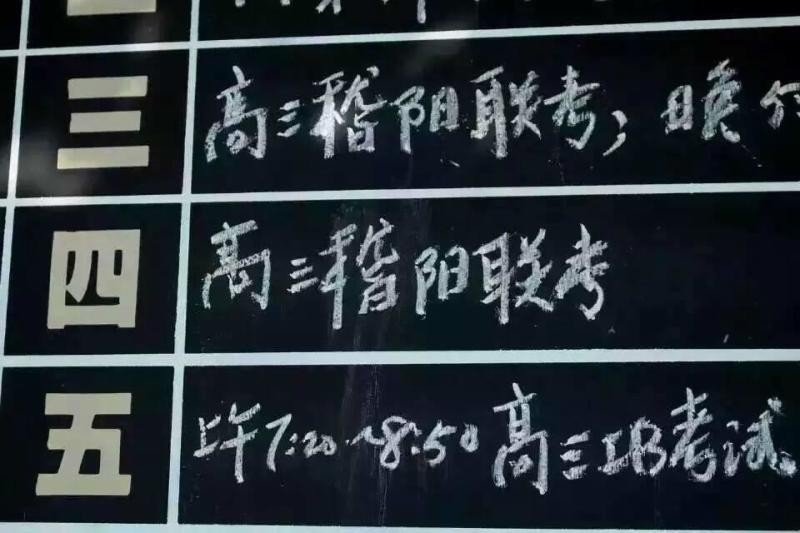 三 高三稽阳联考，晚
四 高三稽阳联考
五 上午7:20~8:50高三IB考试